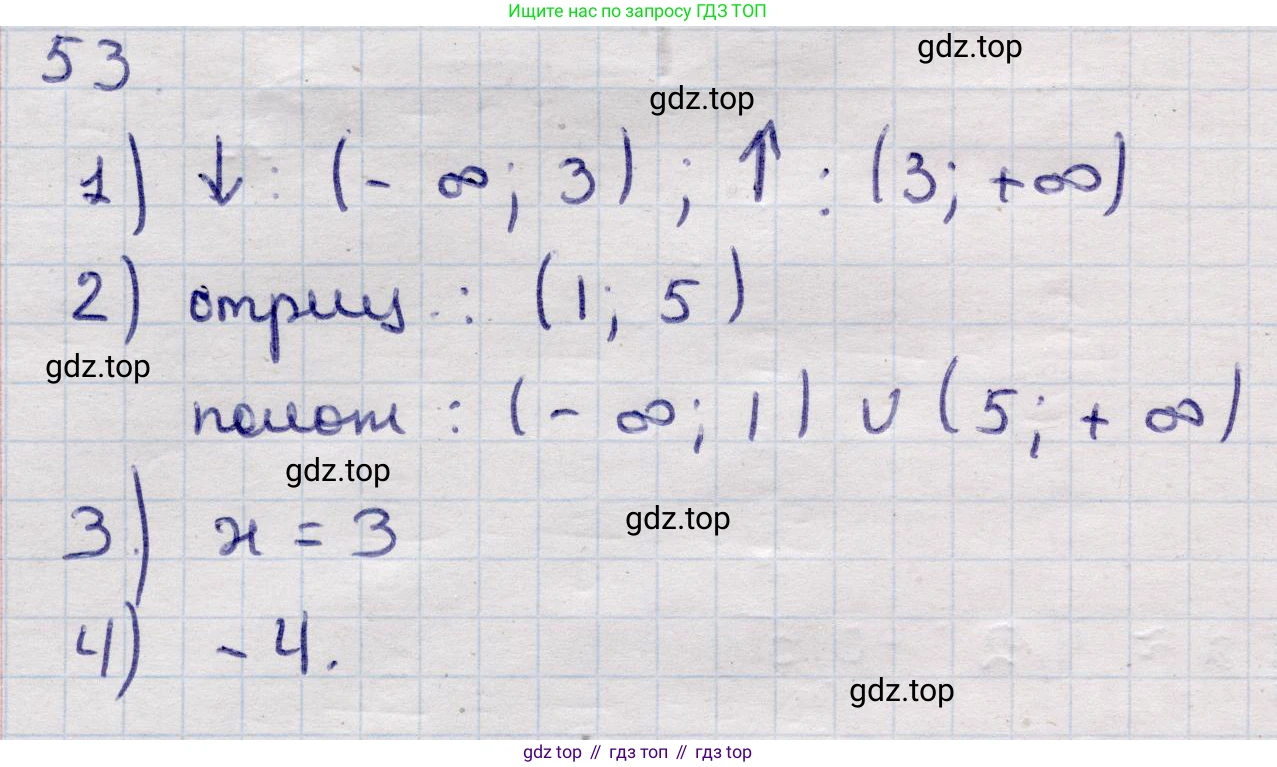 Ищите нас по запросу ГДЗ ТОП
53
gdz.top
gdz.top
1) ↓: (- ∞; 3) ; ↑ : (3; +∞)
2) отриц.: (1; 5)
gdz.top
полож : (- ∞; 1) ∪ (5; + ∞)
gdz.top
3) x = 3
gdz.top
4) - 4.
gdz.top
gdz top // гдз топ // гдз top